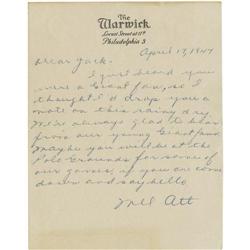 The
Warwick
Locust Street at 17th
Philadelphia 3
April 17, 1947
Dear Jack:
I just heard you
were a Giant fan, so I
thought I'd drop you a
note on this rainy day.
We're always glad to hear
from our young Giant fans.
Maybe you will be at the
Polo Grounds for some of
our games, if you are come
down and say hello
Mel Ott